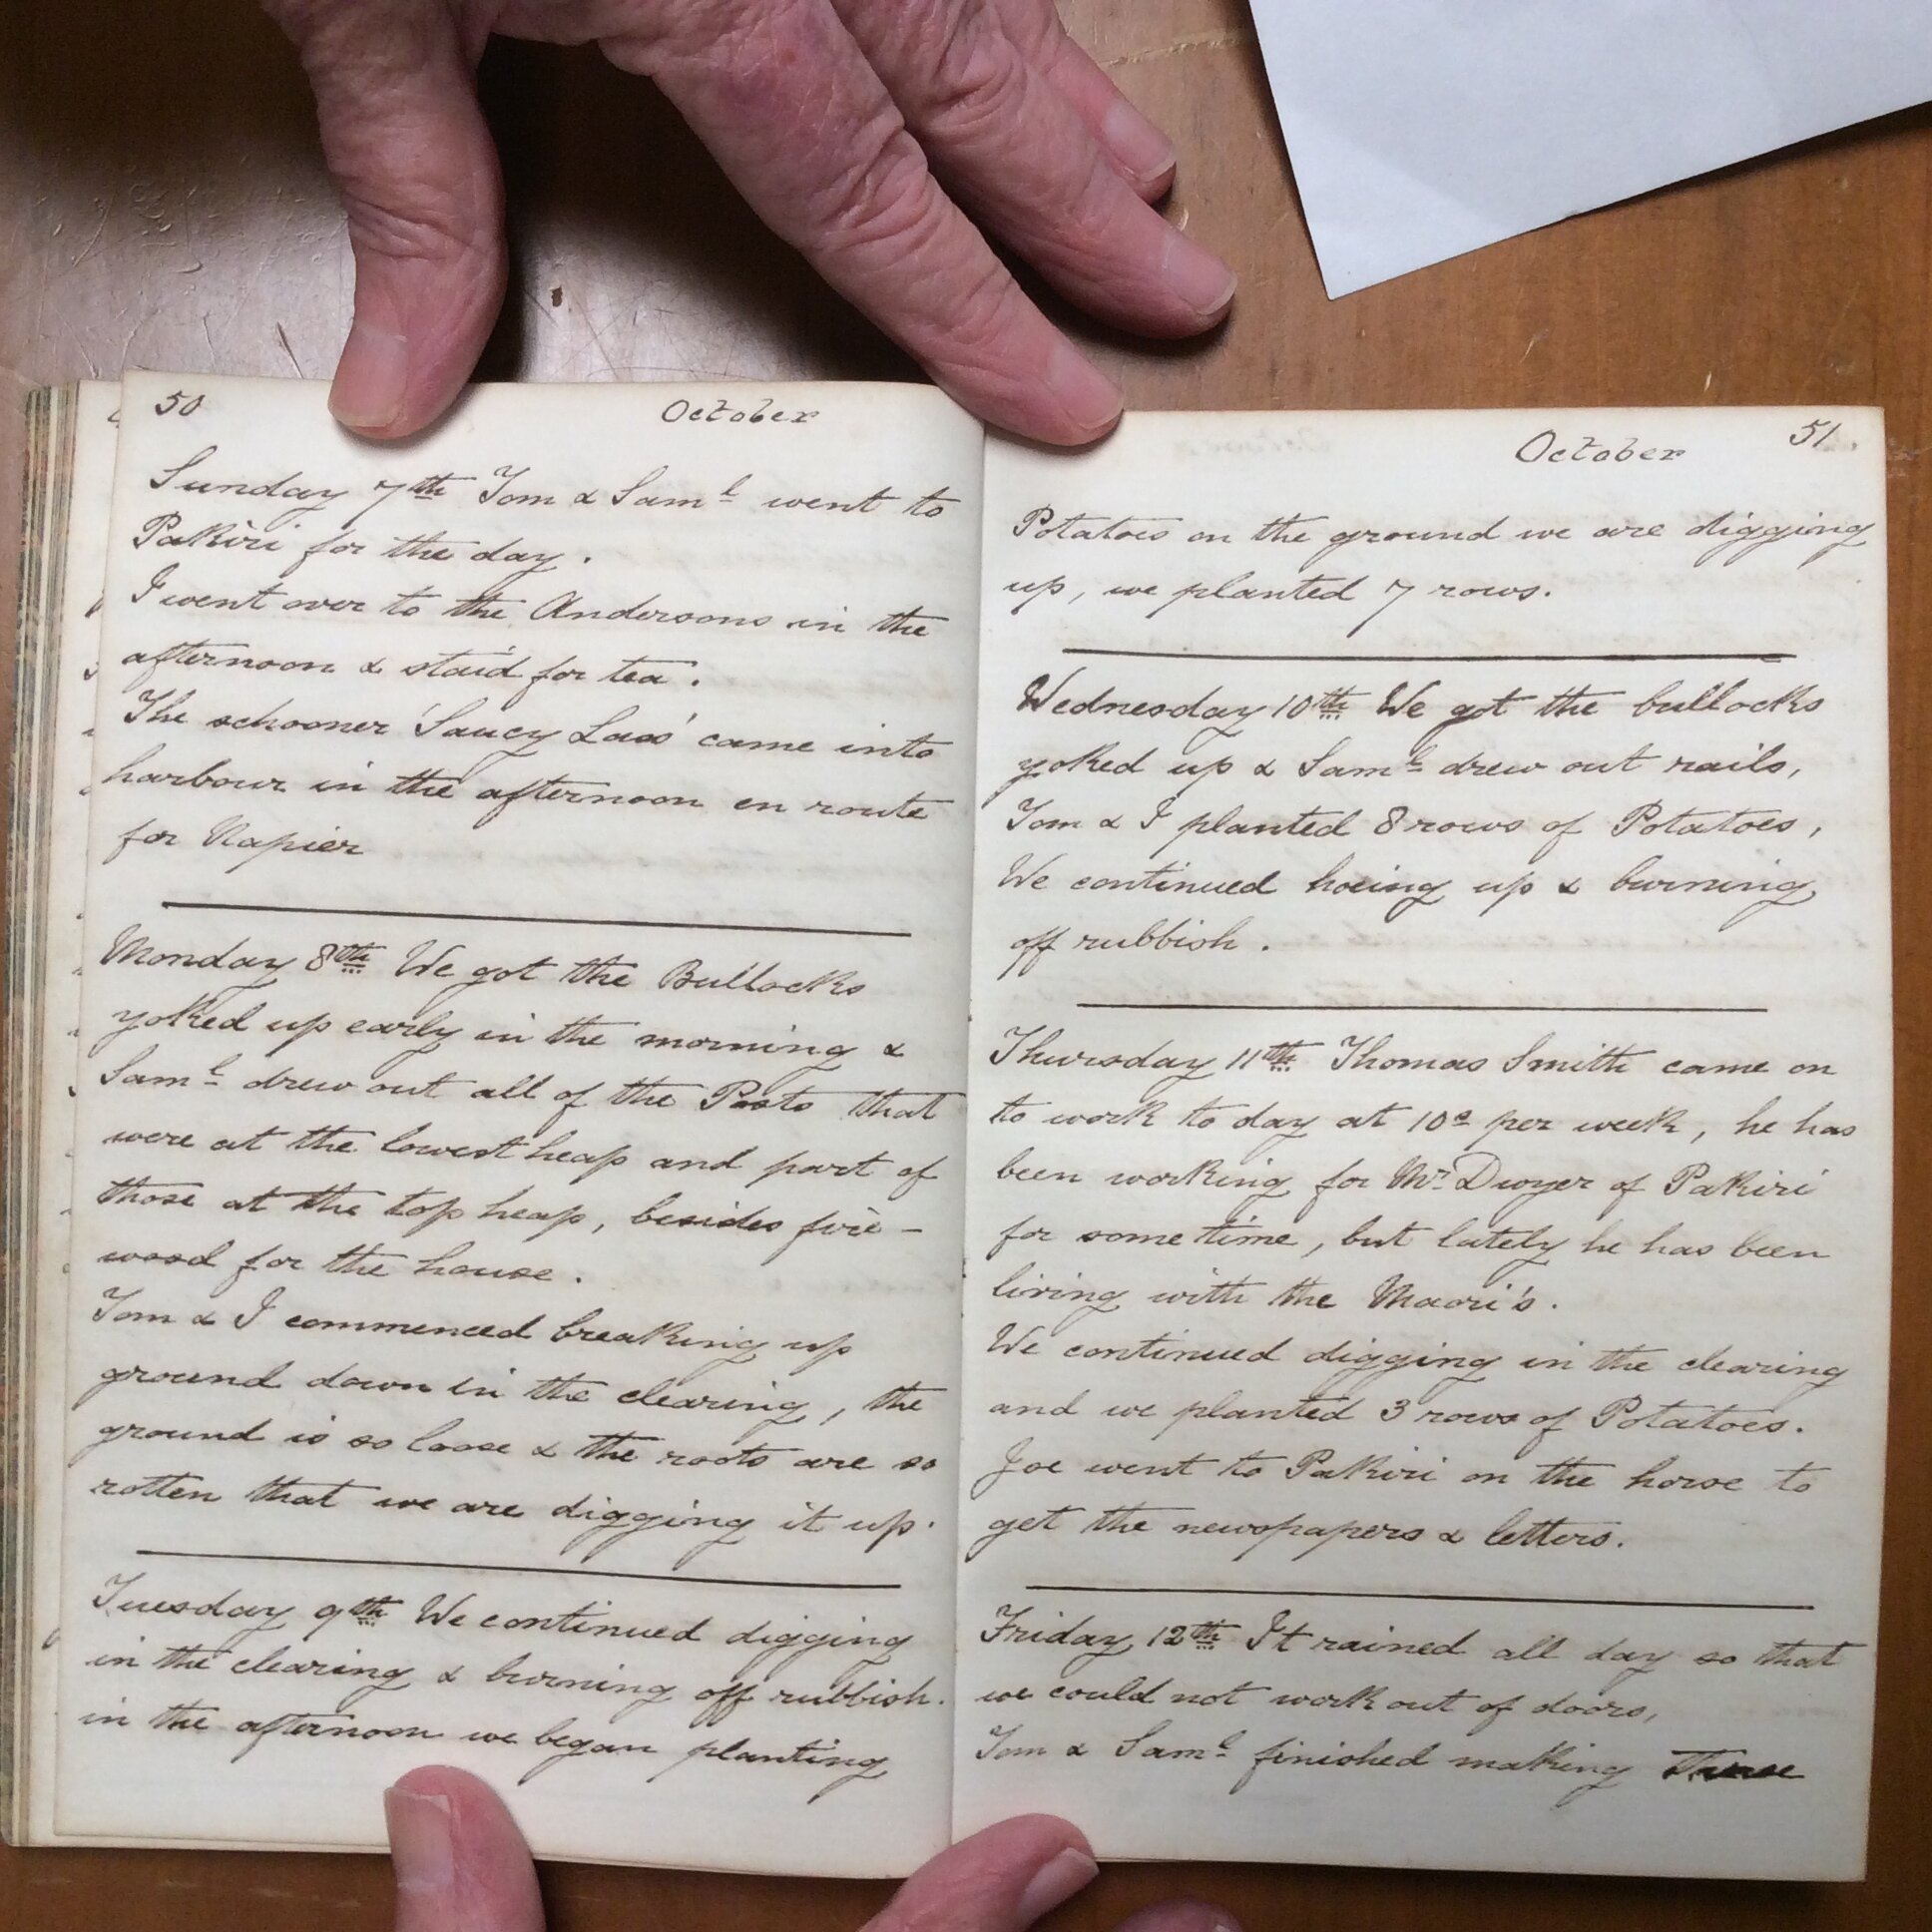 50
October
Sunday 7th Tom & Saml went to
Pakiri for the day.
I went over to the Andersons in the
afternoon & staid for tea.
The schooner 'Saucy Lass' came into
harbour in the afternoon en route
for Napier
Monday 8th We got the Bullocks
yoked up early in the morning &
Saml drew out all of the Posts that
were at the lowest heap and part of
those at the top heap, besides fire-
wood for the house.
Tom & I commenced breaking up
ground down in the clearing, the
ground is so loose & the roots are so
rotten that we are digging it up.
Tuesday 9th We continued digging
in the clearing & burning off rubbish.
in the afternoon we began planting
51
October
Potatoes on the ground we are digging
up, we planted 7 rows.
Wednesday 10th We got the bullocks
yoked up & Saml drew out rails,
Tom & I planted 8 rows of Potatoes,
We continued hoeing up & burning
off rubbish.
Thursday 11th Thomas Smith came on
to work to day at 10s per week, he has
been working for Mr Dwyer of Pakiri
for some time, but lately he has been
living with the Maori's.
We continued digging in the clearing
and we planted 3 rows of Potatoes.
Joe went to Pakiri on the horse to
get the newspapers & letters.
Friday 12th It rained all day so that
we could not work out of doors,
Tom & Saml finished making